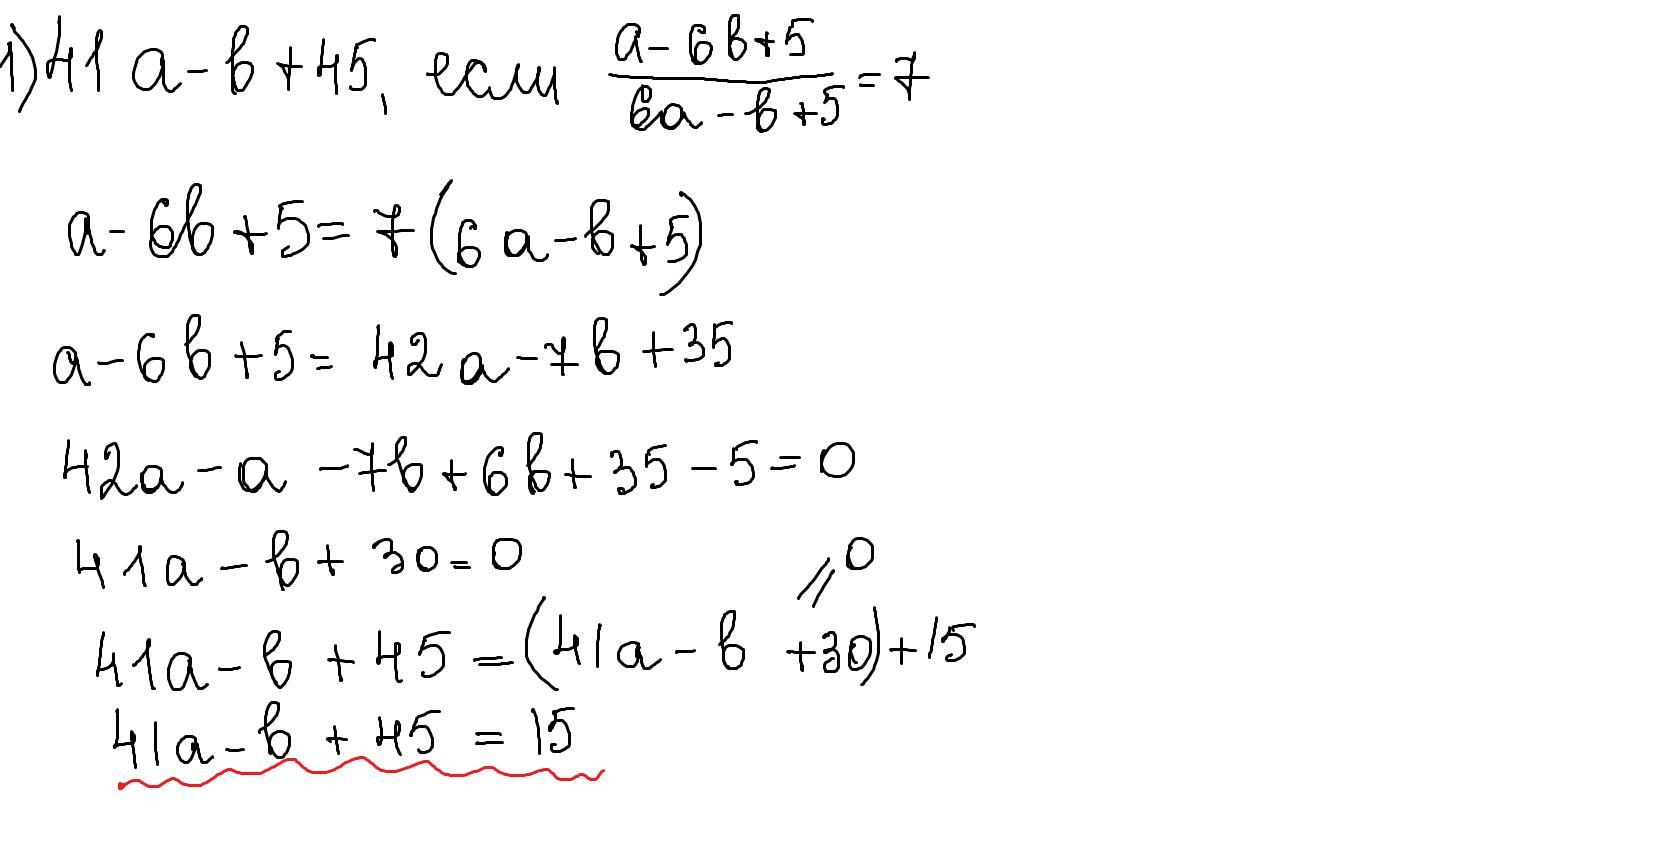 1) 41a - b + 45, если (a - 6b + 5)/(6a - b + 5) = 7
a - 6b + 5 = 7(6a - b + 5)
a - 6b + 5 = 42a - 7b + 35
42a - a - 7b + 6b + 35 - 5 = 0
41a - b + 30 = 0
= 0
41a - b + 45 = (41a - b + 30) + 15
41a - b + 45 = 15